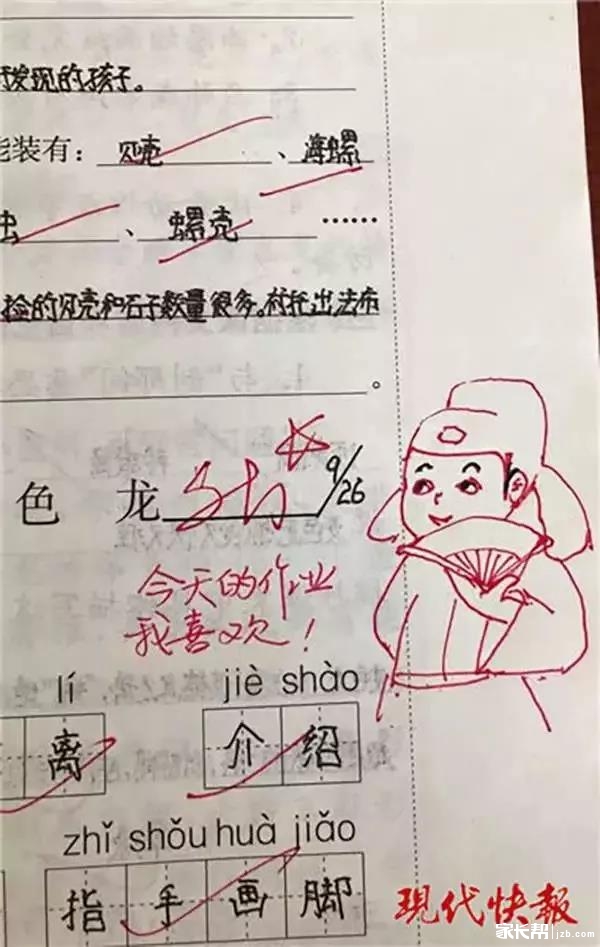 发现的孩子。
能装有：贝壳、海螺
虫、螺壳……
捡的贝壳和石子数量很多。
色 龙 9/26
今天的作业
我喜欢！
lí jiè shào
离 介绍
zhǐ shǒu huà jiǎo
指手画脚
现代快報
家长帮 jzb.com